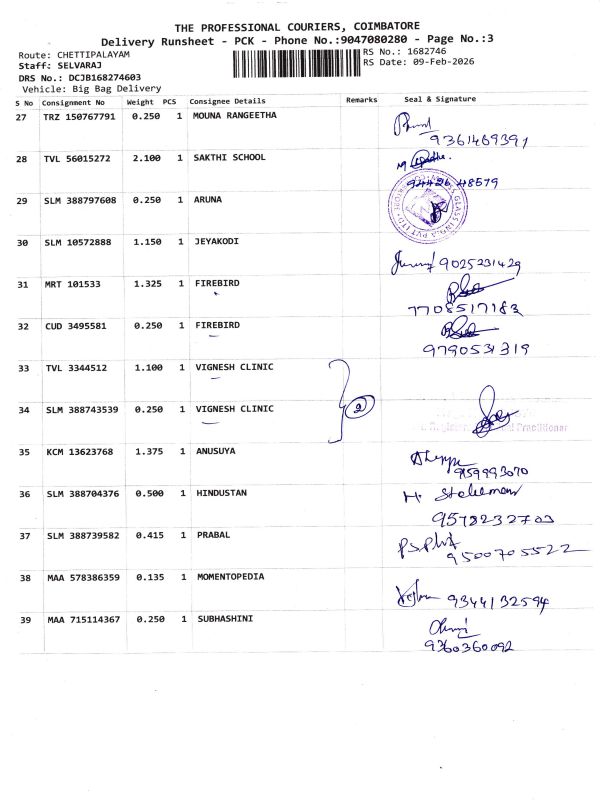 THE PROFESSIONAL COURIERS, COIMBATORE
Delivery Runsheet - PCK - Phone No.:9047080280 - Page No.:3
Route: CHETTIPALAYAM
RS No.: 1682746
Staff: SELVARAJ
RS Date: 09-Feb-2026
DRS No.: DCJB168274603
Vehicle: Big Bag Delivery
S No Consignment No Weight PCS Consignee Details Remarks Seal & Signature
27 TRZ 150767791 0.250 1 MOUNA RANGEETHA
9361469391
28 TVL 56015272 2.100 1 SAKTHI SCHOOL
29 SLM 388797608 0.250 1 ARUNA
30 SLM 10572888 1.150 1 JEYAKODI
9025231429
31 MRT 101533 1.325 1 FIREBIRD
7708517183
32 CUD 3495581 0.250 1 FIREBIRD
9790531319
33 TVL 3344512 1.100 1 VIGNESH CLINIC
2
34 SLM 388743539 0.250 1 VIGNESH CLINIC
Practitioner
35 KCM 13623768 1.375 1 ANUSUYA
9159993070
36 SLM 388704376 0.500 1 HINDUSTAN
9578232703
37 SLM 388739582 0.415 1 PRABAL
9500705522
38 MAA 578386359 0.135 1 MOMENTOPEDIA
9344132594
39 MAA 715114367 0.250 1 SUBHASHINI
9360360092